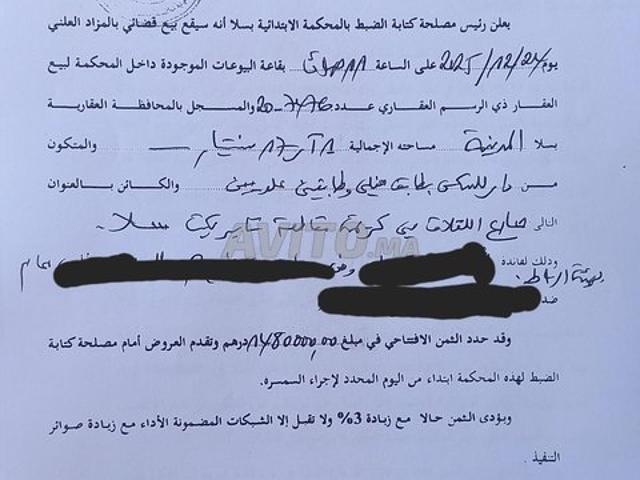 يعلن رئيس مصلحة كتابة الضبط بالمحكمة الابتدائية بسلا أنه سيقع بيع قضائي بالمزاد العلني
يوم 2025/12/24 على الساعة بقاعة البيوعات الموجودة داخل المحكمة لبيع
العقار ذي الرسم العقاري عدد والمسجل بالمحافظة العقارية
بسلا المدينة مساحته الإجمالية 1 آر 17 سنتيار والمتكون
من دار للسكنى بطابق سفلي وطابقين علويين والكائن بالعنوان
التالي شارع تابريكت سلا
AVITO.MA
وذلك لفائدة
ضد
وقد حدد الثمن الافتتاحي في مبلغ 1480000,00 درهم وتقدم العروض أمام مصلحة كتابة
الضبط لهذه المحكمة ابتداء من اليوم المحدد لإجراء السمسره.
ويؤدى الثمن حالا مع زيادة 3% ولا تقبل إلا الشيكات المضمونة الأداء مع زيادة صوائر
التنفيذ .